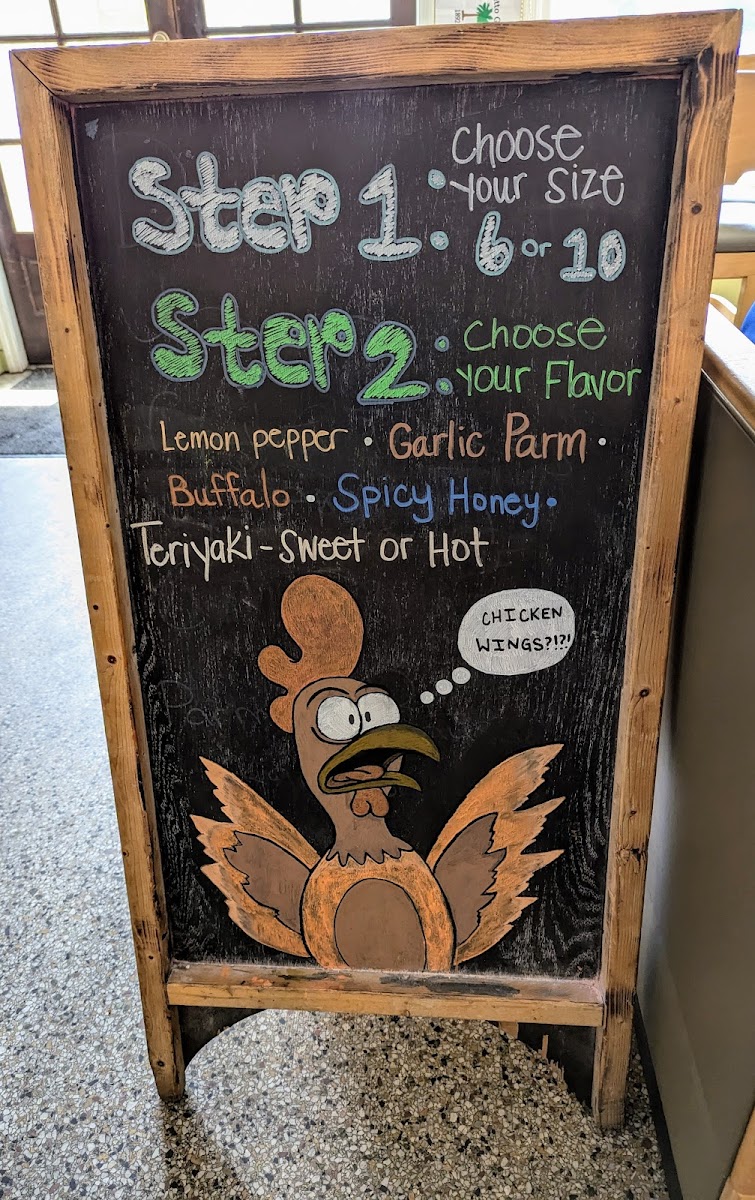 Step 1: Choose
your size
6 or 10
Step 2: Choose
your Flavor
Lemon pepper • Garlic Parm •
Buffalo • Spicy Honey •
Teriyaki - Sweet or Hot
CHICKEN
WINGS?!?!
Parm